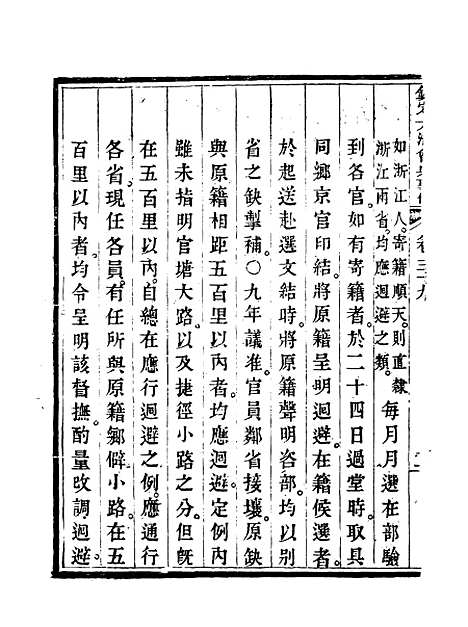 欽定大清會典事例 卷三十九
如浙江人寄籍順天則直隸
浙江兩省均應迴避之類。每月月選在部驗
到各官。如有寄籍者。於二十四日過堂時取具
同鄉京官印結。將原籍呈明迴避。在籍候選者。
於起送赴選文結時。將原籍聲明咨部。均以別
省之缺掣補。○九年議准。官員鄰省接壤。原缺
與原籍相距五百里以內者。均應迴避。定例內
雖未指明官塘大路。以及捷徑小路之分。但旣
在五百里以內。自總在應行迴避之例。應通行
各省現任各員。有任所與原籍鄉僻小路。在五
百里以內者。均令呈明該督撫。酌量改調迴避。